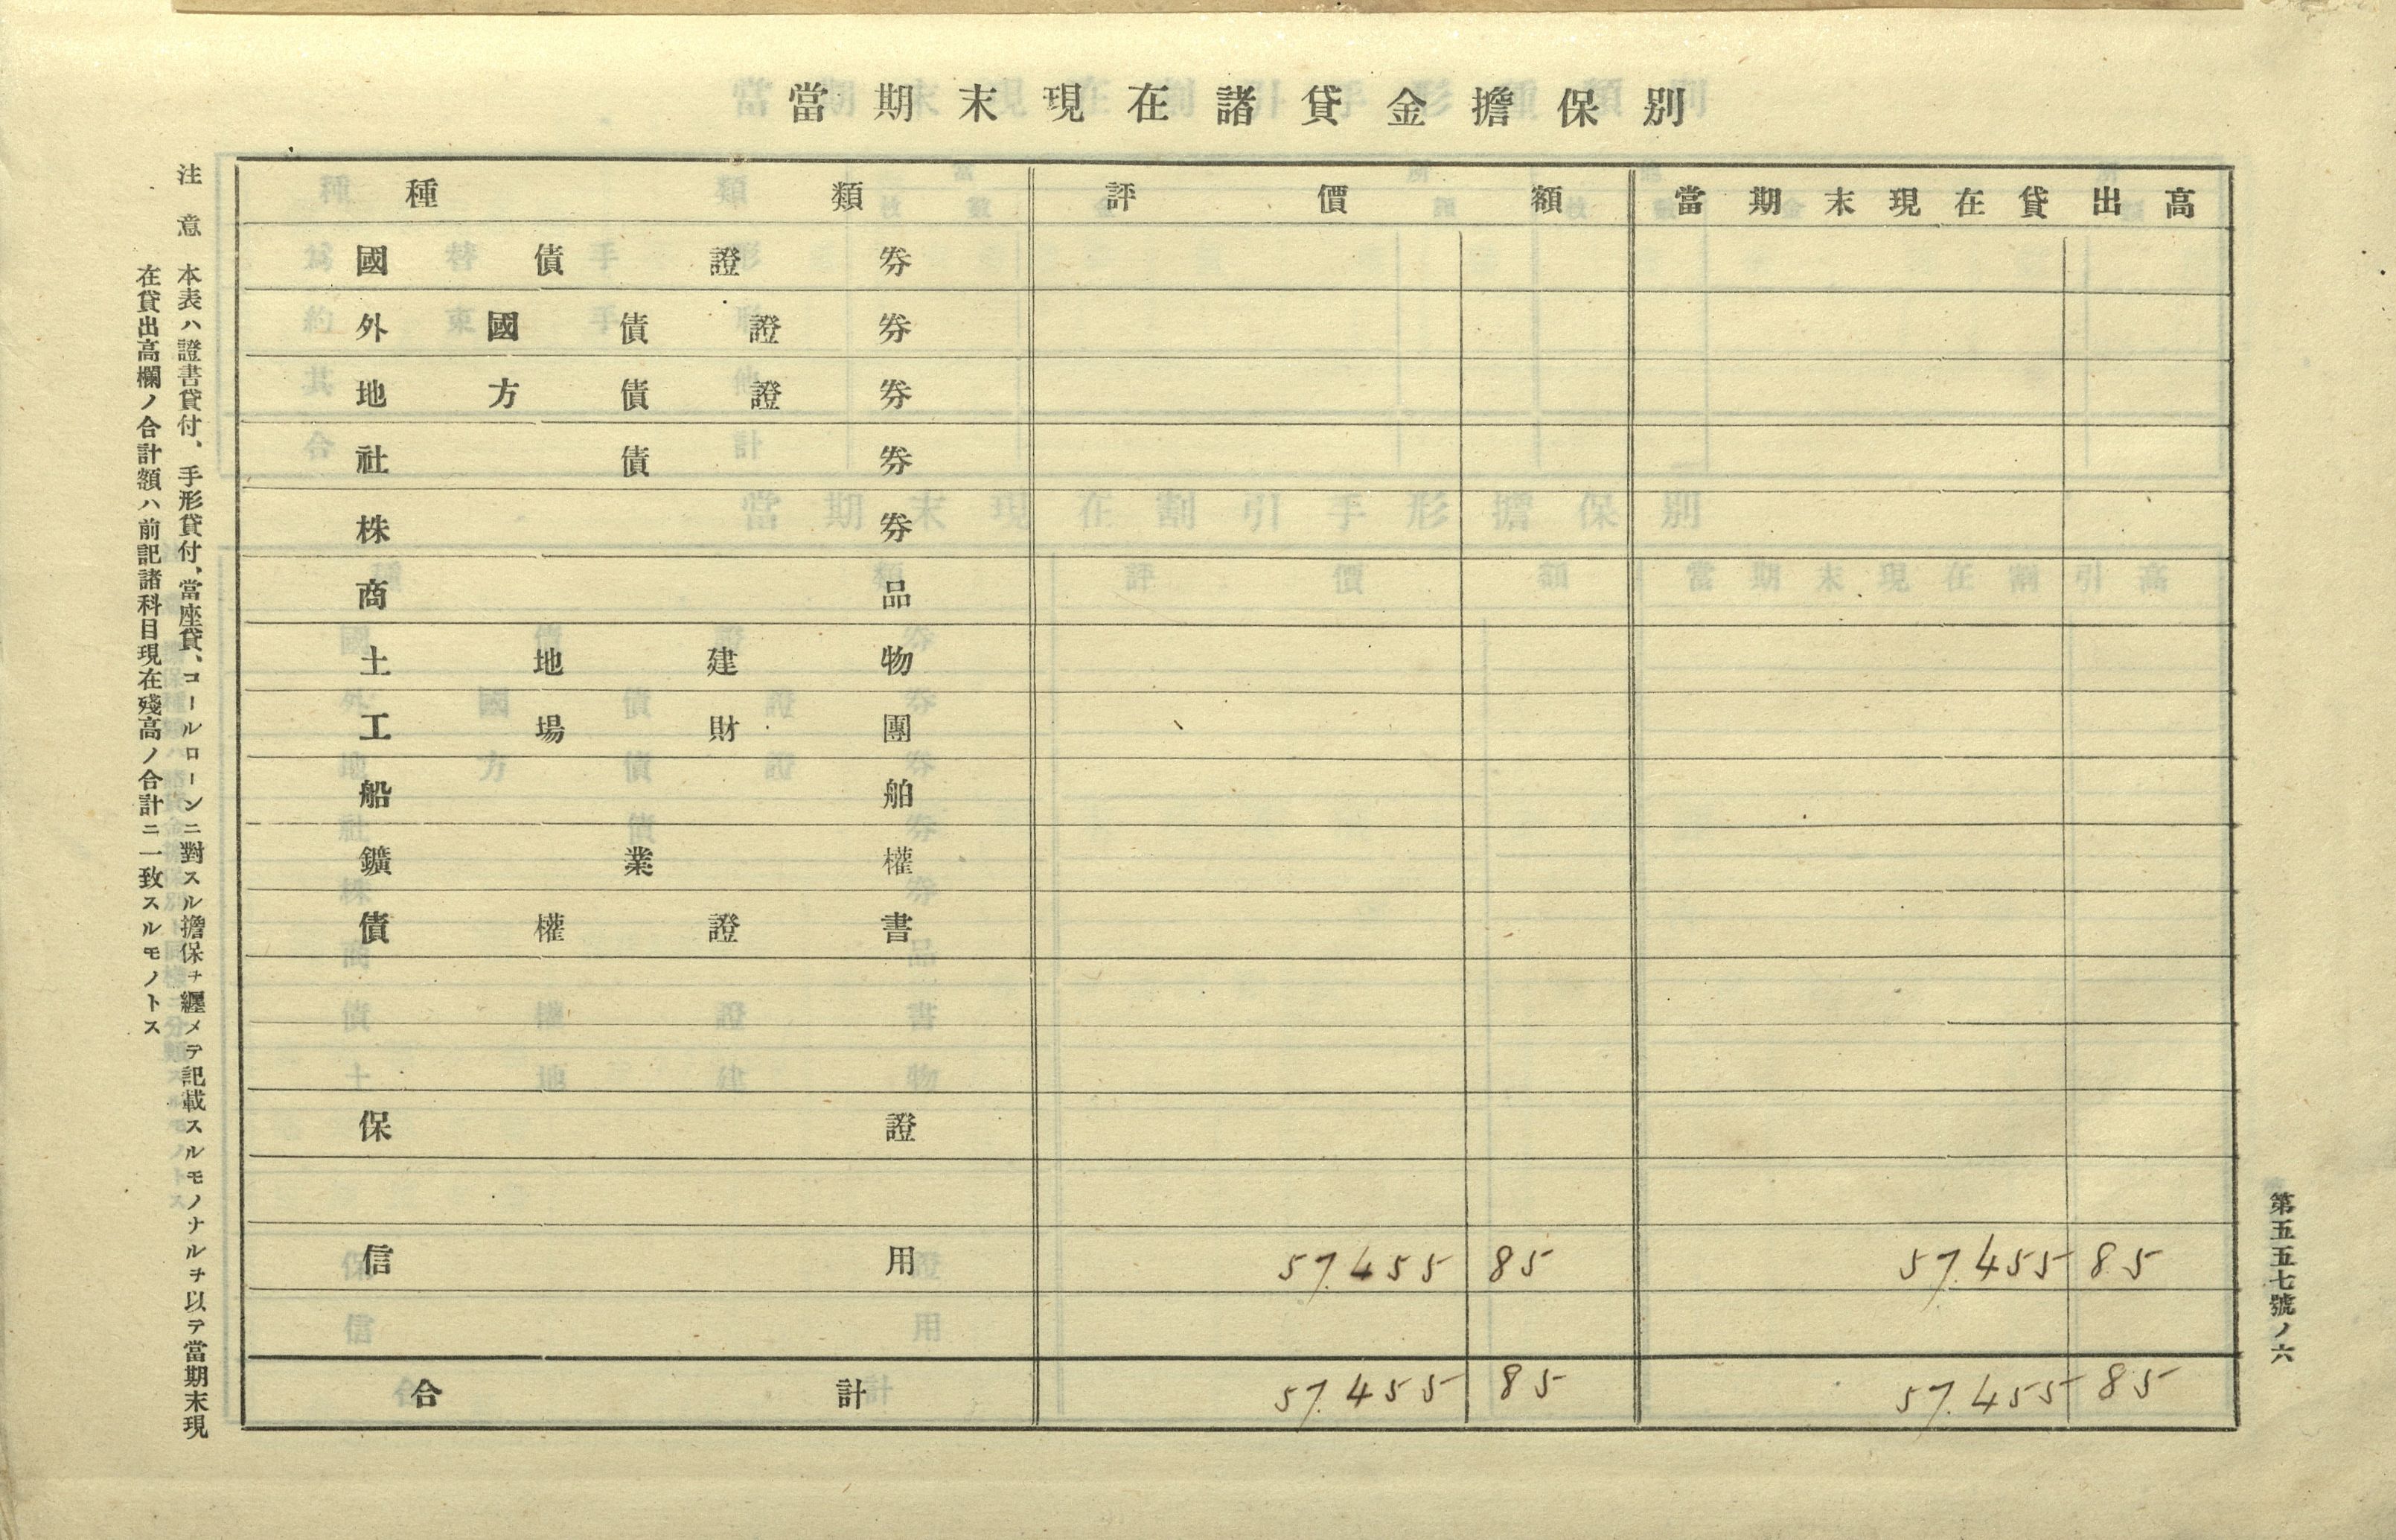 當期末現在諸貸金擔保別
種類 評價額 當期末現在貸出高
國債證券
外國債證券
地方債證券
社債券
株券
商品
土地建物
工場財團
船舶
鑛業權
債權證書
保證
信用 57.455 85 57.455 85
合計 57.455 85 57.455 85
注意 本表ハ證書貸付、手形貸付、當座貸、コールローンニ對スル擔保ヲ纒メテ記載スルモノナルヲ以テ當期末現
在貸出高欄ノ合計額ハ前記諸科目現在殘高ノ合計ニ一致スルモノトス
第五五七號ノ六